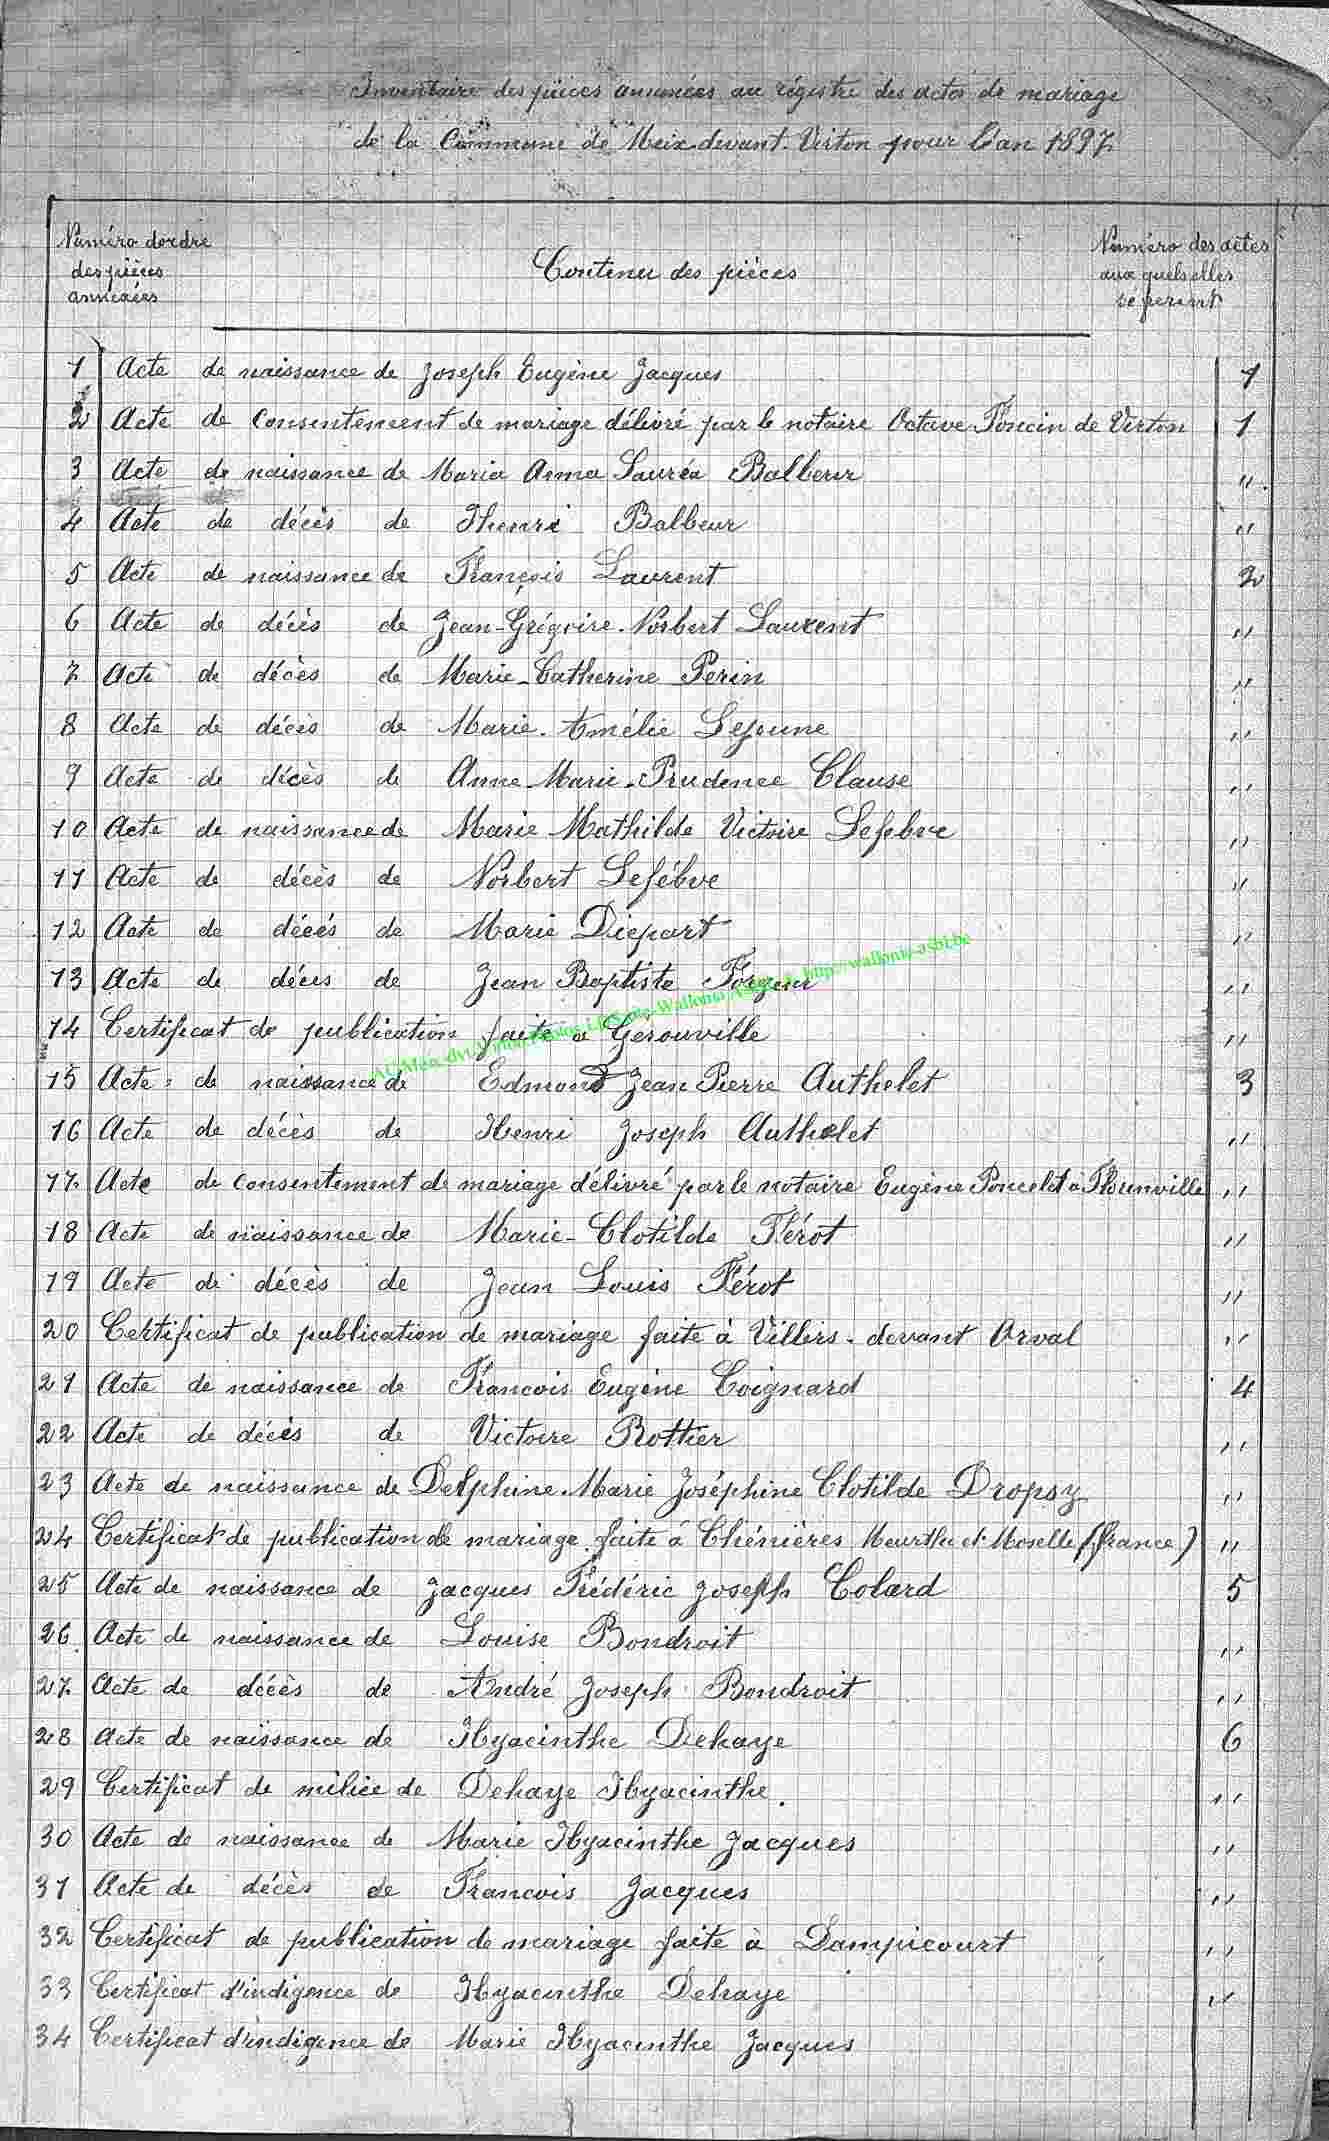 Inventaire des pièces annexées au régistre des actes de mariage
de la Commune de Meix-devant-Virton pour l'an 1897
Numéro d'ordre
des pièces
annexées
Contenu des pièces
Numéro des actes
aux quels elles
se
1 Acte de naissance de Joseph Eugène Jacques 1
2 Acte de Consentement de mariage délivré par le notaire Octave Foncin de Virton 1
3 Acte de naissance de Maria Anna Lauréa Balbeur "
4 Acte de décès de Henri Balbeur "
5 Acte de naissance de François Laurent 2
6 Acte de décès de Jean-Grégoire-Norbert Laurent "
7 Acte de décès de Marie-Catherine Perin "
8 Acte de décès de Marie-Amélie Lejeune "
9 Acte de décès de Anne-Marie-Prudence Clause "
10 Acte de naissance de Marie Mathilde Victoire Lefebvre "
11 Acte de décès de Norbert Lefébve "
12 Acte de décès de Marie Diepart "
13 Acte de décès de Jean Baptiste Forgeur "
14 Certificat de publication faite à Gérouville "
15 Acte de naissance de Edmond Jean Pierre Authelet 3
16 Acte de décès de Henri Joseph Authelet "
17 Acte de consentement de mariage délivré par le notaire Eugène Poncelet à Florenville "
18 Acte de naissance de Marie-Clotilde Férot "
19 Acte de décès de Jean Louis Férot "
20 Certificat de publication de mariage faite à Villers-devant Orval "
21 Acte de naissance de Francois Eugène Coignard 4
22 Acte de décès de Victoire Rottier "
23 Acte de naissance de Delphine-Marie Joséphine Clotilde Dropsy "
24 Certificat de publication de mariage faite à Chénières Meurthe et Moselle (france) "
25 Acte de naissance de Jacques Frédéric Joseph Colard 5
26 Acte de naissance de Louise Bondroit "
27 Acte de décès de André Joseph Bondroit "
28 Acte de naissance de Hyacinthe Dehaye 6
29 Certificat de milice de Dehaye Hyacinthe. "
30 Acte de naissance de Marie Hyacinthe Jacques "
31 Acte de décès de Francois Jacques "
32 Certificat de publication de mariage faite à Dampicourt "
33 Certificat d'indigence de Hyacinthe Dehaye "
34 Certificat d'indigence de Marie Hyacinthe Jacques